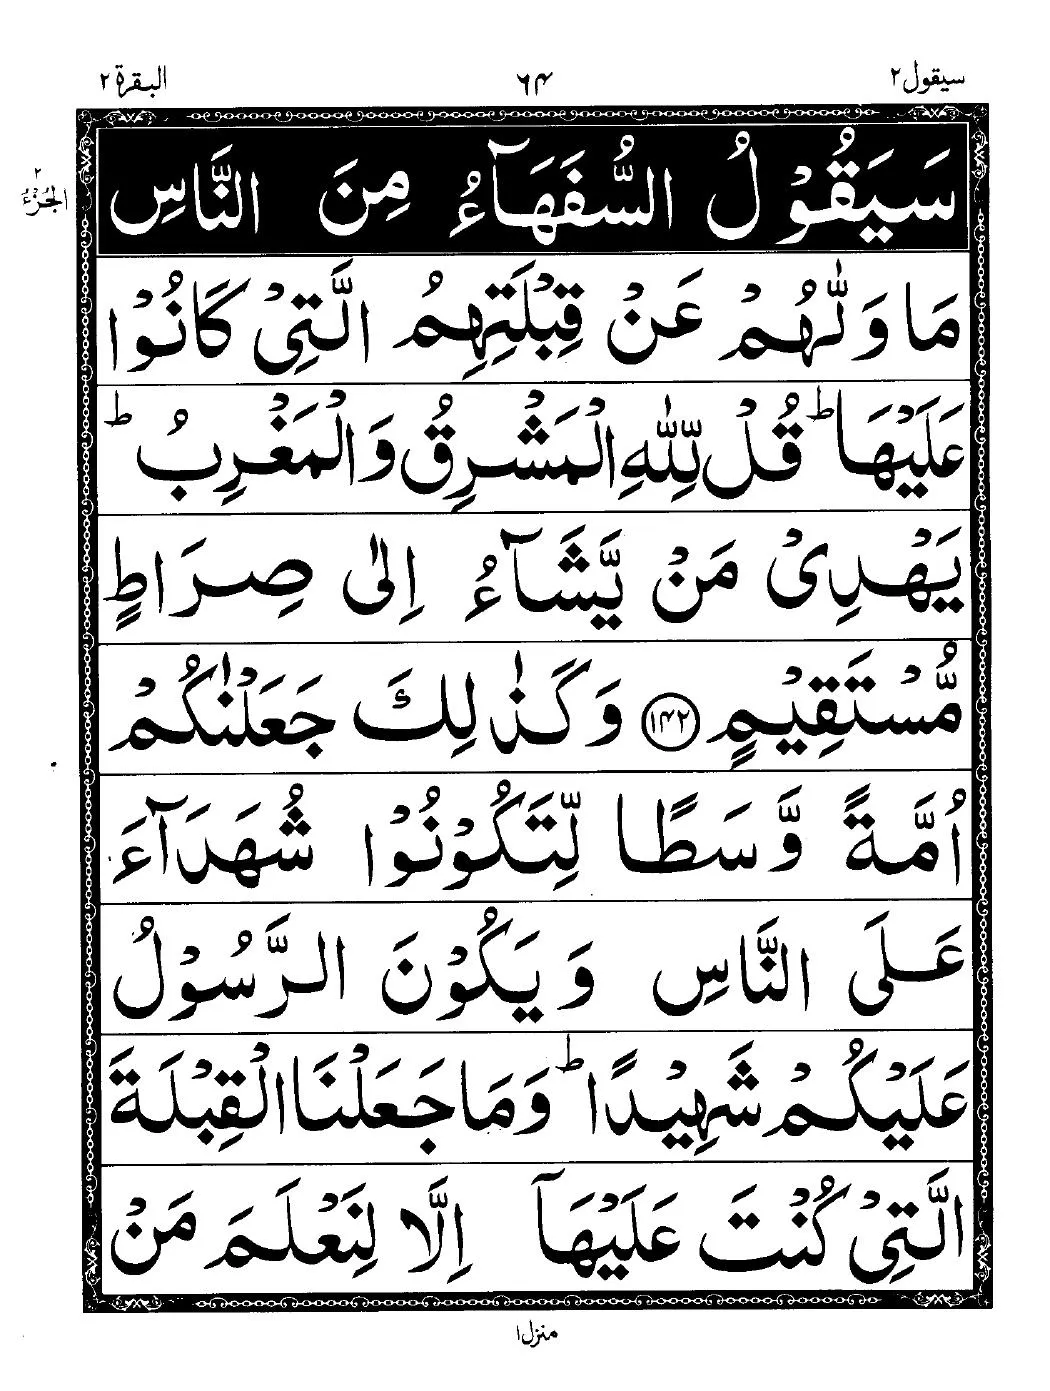 سيقول ٢
٦٤
البقرة ٢
الجزء ٢
سَيَقُوْلُ السُّفَهَآءُ مِنَ النَّاسِ
مَا وَلّٰىهُمْ عَنْ قِبْلَتِهِمُ الَّتِىْ كَانُوْا
عَلَيْهَا ؕ قُلْ لِّلّٰهِ الْمَشْرِقُ وَالْمَغْرِبُ ؕ
يَهْدِىْ مَنْ يَّشَآءُ اِلٰى صِرَاطٍ
مُّسْتَقِيْمٍ ۝١٤٢ وَكَذٰلِكَ جَعَلْنٰكُمْ
اُمَّةً وَّسَطًا لِّتَكُوْنُوْا شُهَدَآءَ
عَلَى النَّاسِ وَيَكُوْنَ الرَّسُوْلُ
عَلَيْكُمْ شَهِيْدًا ؕ وَمَا جَعَلْنَا الْقِبْلَةَ
الَّتِىْ كُنْتَ عَلَيْهَآ اِلَّا لِنَعْلَمَ مَنْ
منزل ١